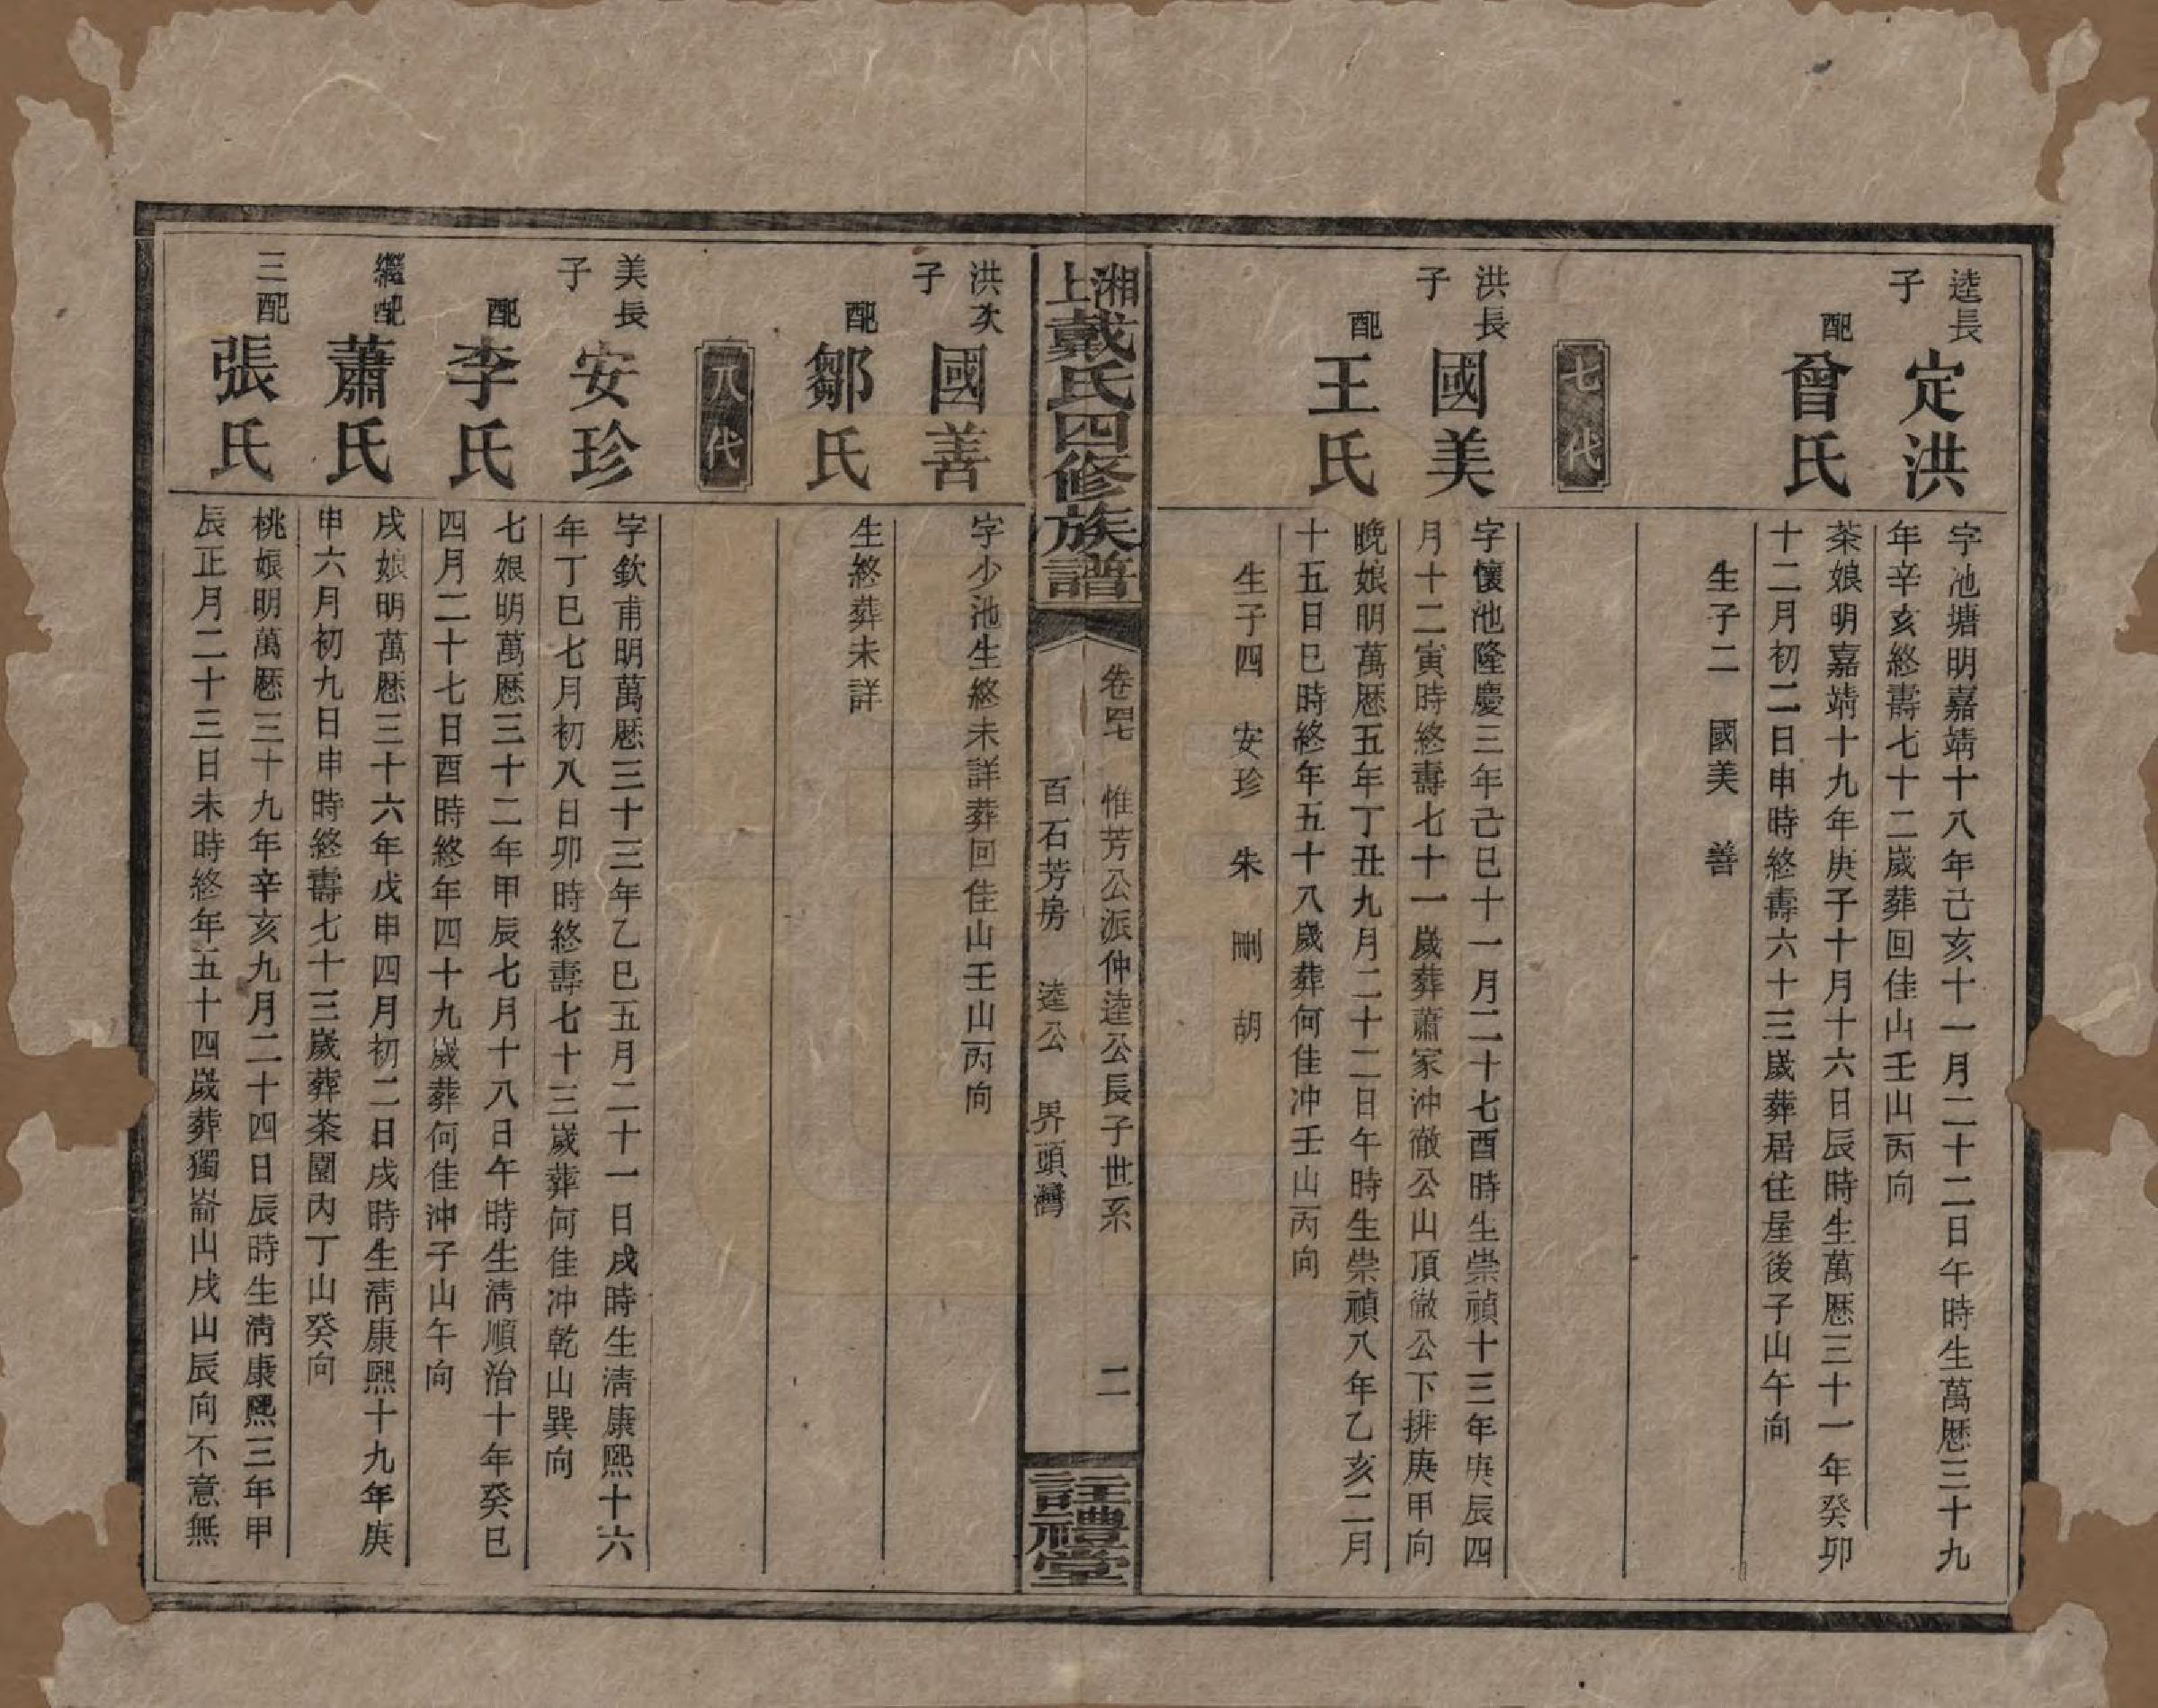 逵長子
定洪
字池塘明嘉靖十八年己亥十一月二十二日午時生萬厯三十九
年辛亥終壽七十二歲葬回佳山壬山丙向
配
曾氏
茶娘明嘉靖十九年庚子十月十六日辰時生萬厯三十一年癸卯
十二月初二日申時終壽六十三歲葬居住屋後子山午向
生子二 國美 善
七代
洪長子
國美
字懷池隆慶三年己巳十一月二十七酉時生崇禎十三年庚辰四
月十二寅時終壽七十一歲葬蕭家沖徹公山頂徹公下排庚甲向
配
王氏
晚娘明萬厯五年丁丑九月二十二日午時生崇禎八年乙亥二月
十五日巳時終年五十八歲葬何佳冲壬山丙向
生子四 安珍 朱 剛 胡
湘上戴氏四修族譜
卷四七 惟芳公派仲逵公長子世系
百石芳房 逵公 界頭灣
二
註禮堂
洪次子
國善
字少池生終未詳葬回佳山壬山丙向
配
鄒氏
生終葬未詳
八代
美長子
安珍
字欽甫明萬厯三十三年乙巳五月二十一日戌時生清康熙十六
年丁巳七月初八日卯時終壽七十三歲葬何佳冲乾山巽向
配
李氏
七娘明萬厯三十二年甲辰七月十八日午時生清順治十年癸巳
四月二十七日酉時終年四十九歲葬何佳沖子山午向
繼配
蕭氏
戌娘明萬厯三十六年戊申四月初二日戌時生清康熙十九年庚
申六月初九日申時終壽七十三歲葬茶園內丁山癸向
三配
張氏
桃娘明萬厯三十九年辛亥九月二十四日辰時生清康熙三年甲
辰正月二十三日未時終年五十四歲葬獨崙山戌山辰向不意無